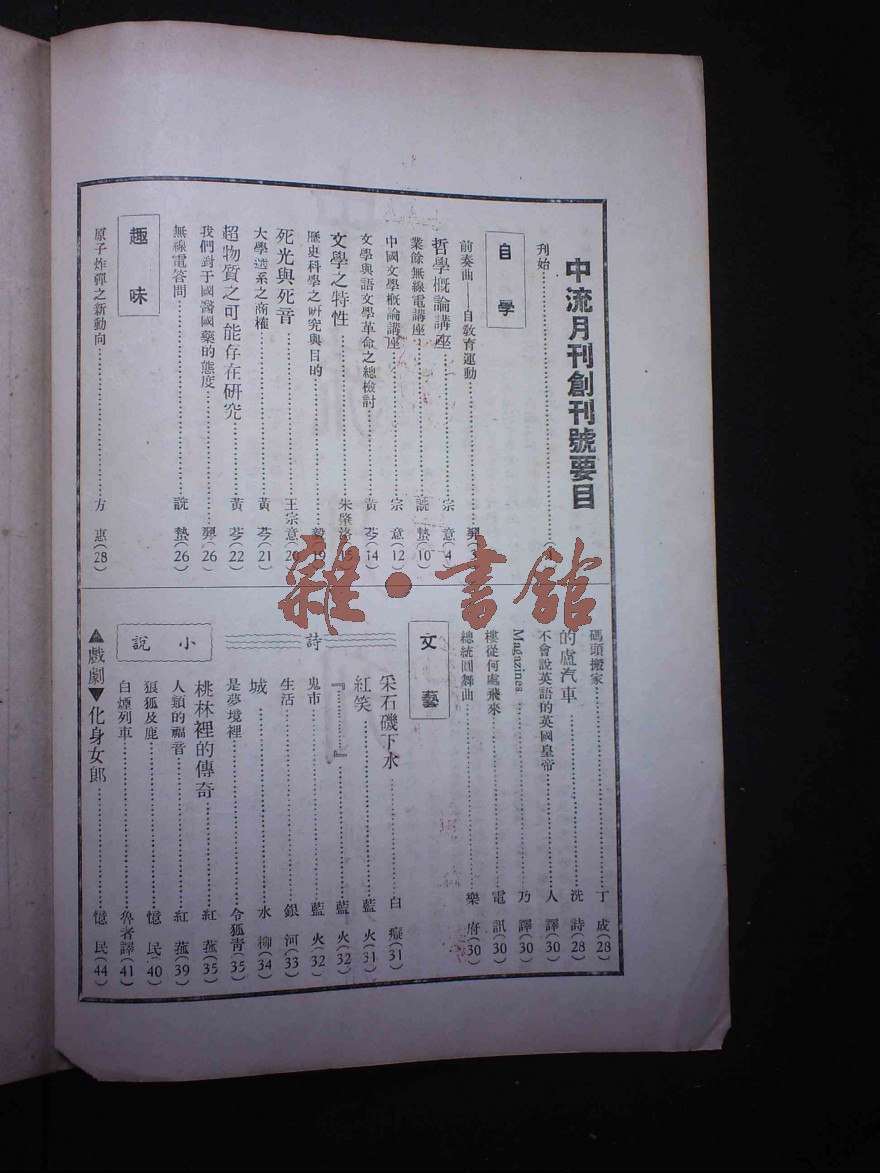 中流月刊創刊號要目
刋始
自學
前奏曲——自敎育運動 羿(3)
哲學概論講座 宗意(4)
業餘無線電講座 詵蟄(10)
中國文學概論講座 宗意(12)
文學與語文學革命之總檢討 黃芩(14)
文學之特性 朱肇洛
歷史科學之硏究與目的
死光與死音 王宗意(20)
大學選系之商榷 黃芩(21)
超物質之可能存在硏究 黃芩(22)
我們對于國醫國藥的態度 羿(26)
無線電答問 詵蟄(26)
趣味
原子炸彈之新動向 方惠(28)
碼頭搬家 丁成(28)
的盧汽車 洗詩(28)
不會說英語的英國皇帝 人譯(30)
Magazines 乃譯(30)
機從何處飛來 電訊(30)
總統圓舞曲 樂府(30)
文藝
詩
采石磯下水 白癡(31)
紅笑 藍火(31)
『………』 藍火(32)
鬼市 藍火(32)
生活 銀河(33)
城 水柳(34)
是夢境裡 令狐青(35)
小說
桃林裡的傳奇 紅菰(35)
人類的福音 紅菰(39)
狼狐及鹿 憶民(40)
白煙列車 魯者譯(41)
▲戲劇▼化身女郎 憶民(44)
雜·書館